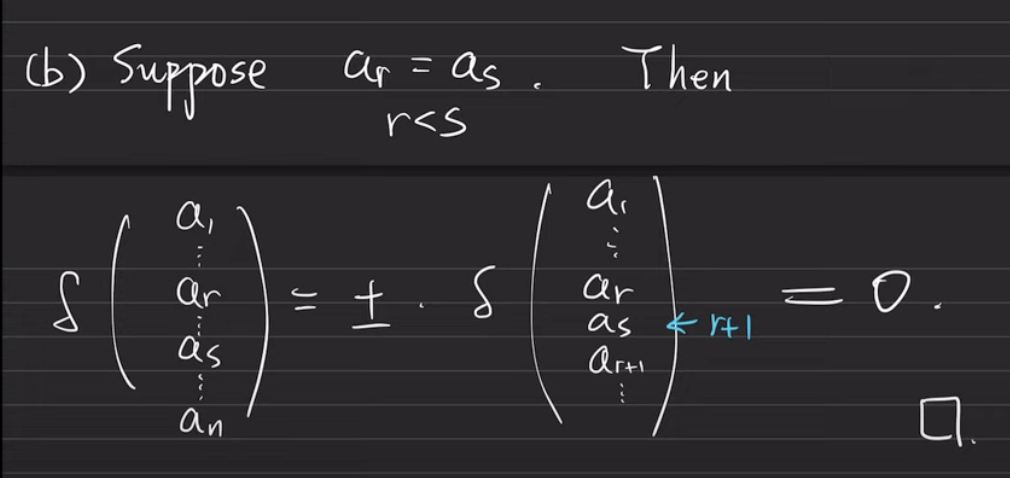 (b) Suppose aᵣ = aₛ. Then
r<s
δ ( a₁ ⋮ aᵣ ⋮ aₛ ⋮ aₙ ) = ± · δ ( a₁ ⋮ aᵣ aₛ ← r+1 aᵣ₊₁ ⋮ ) = 0.
□.